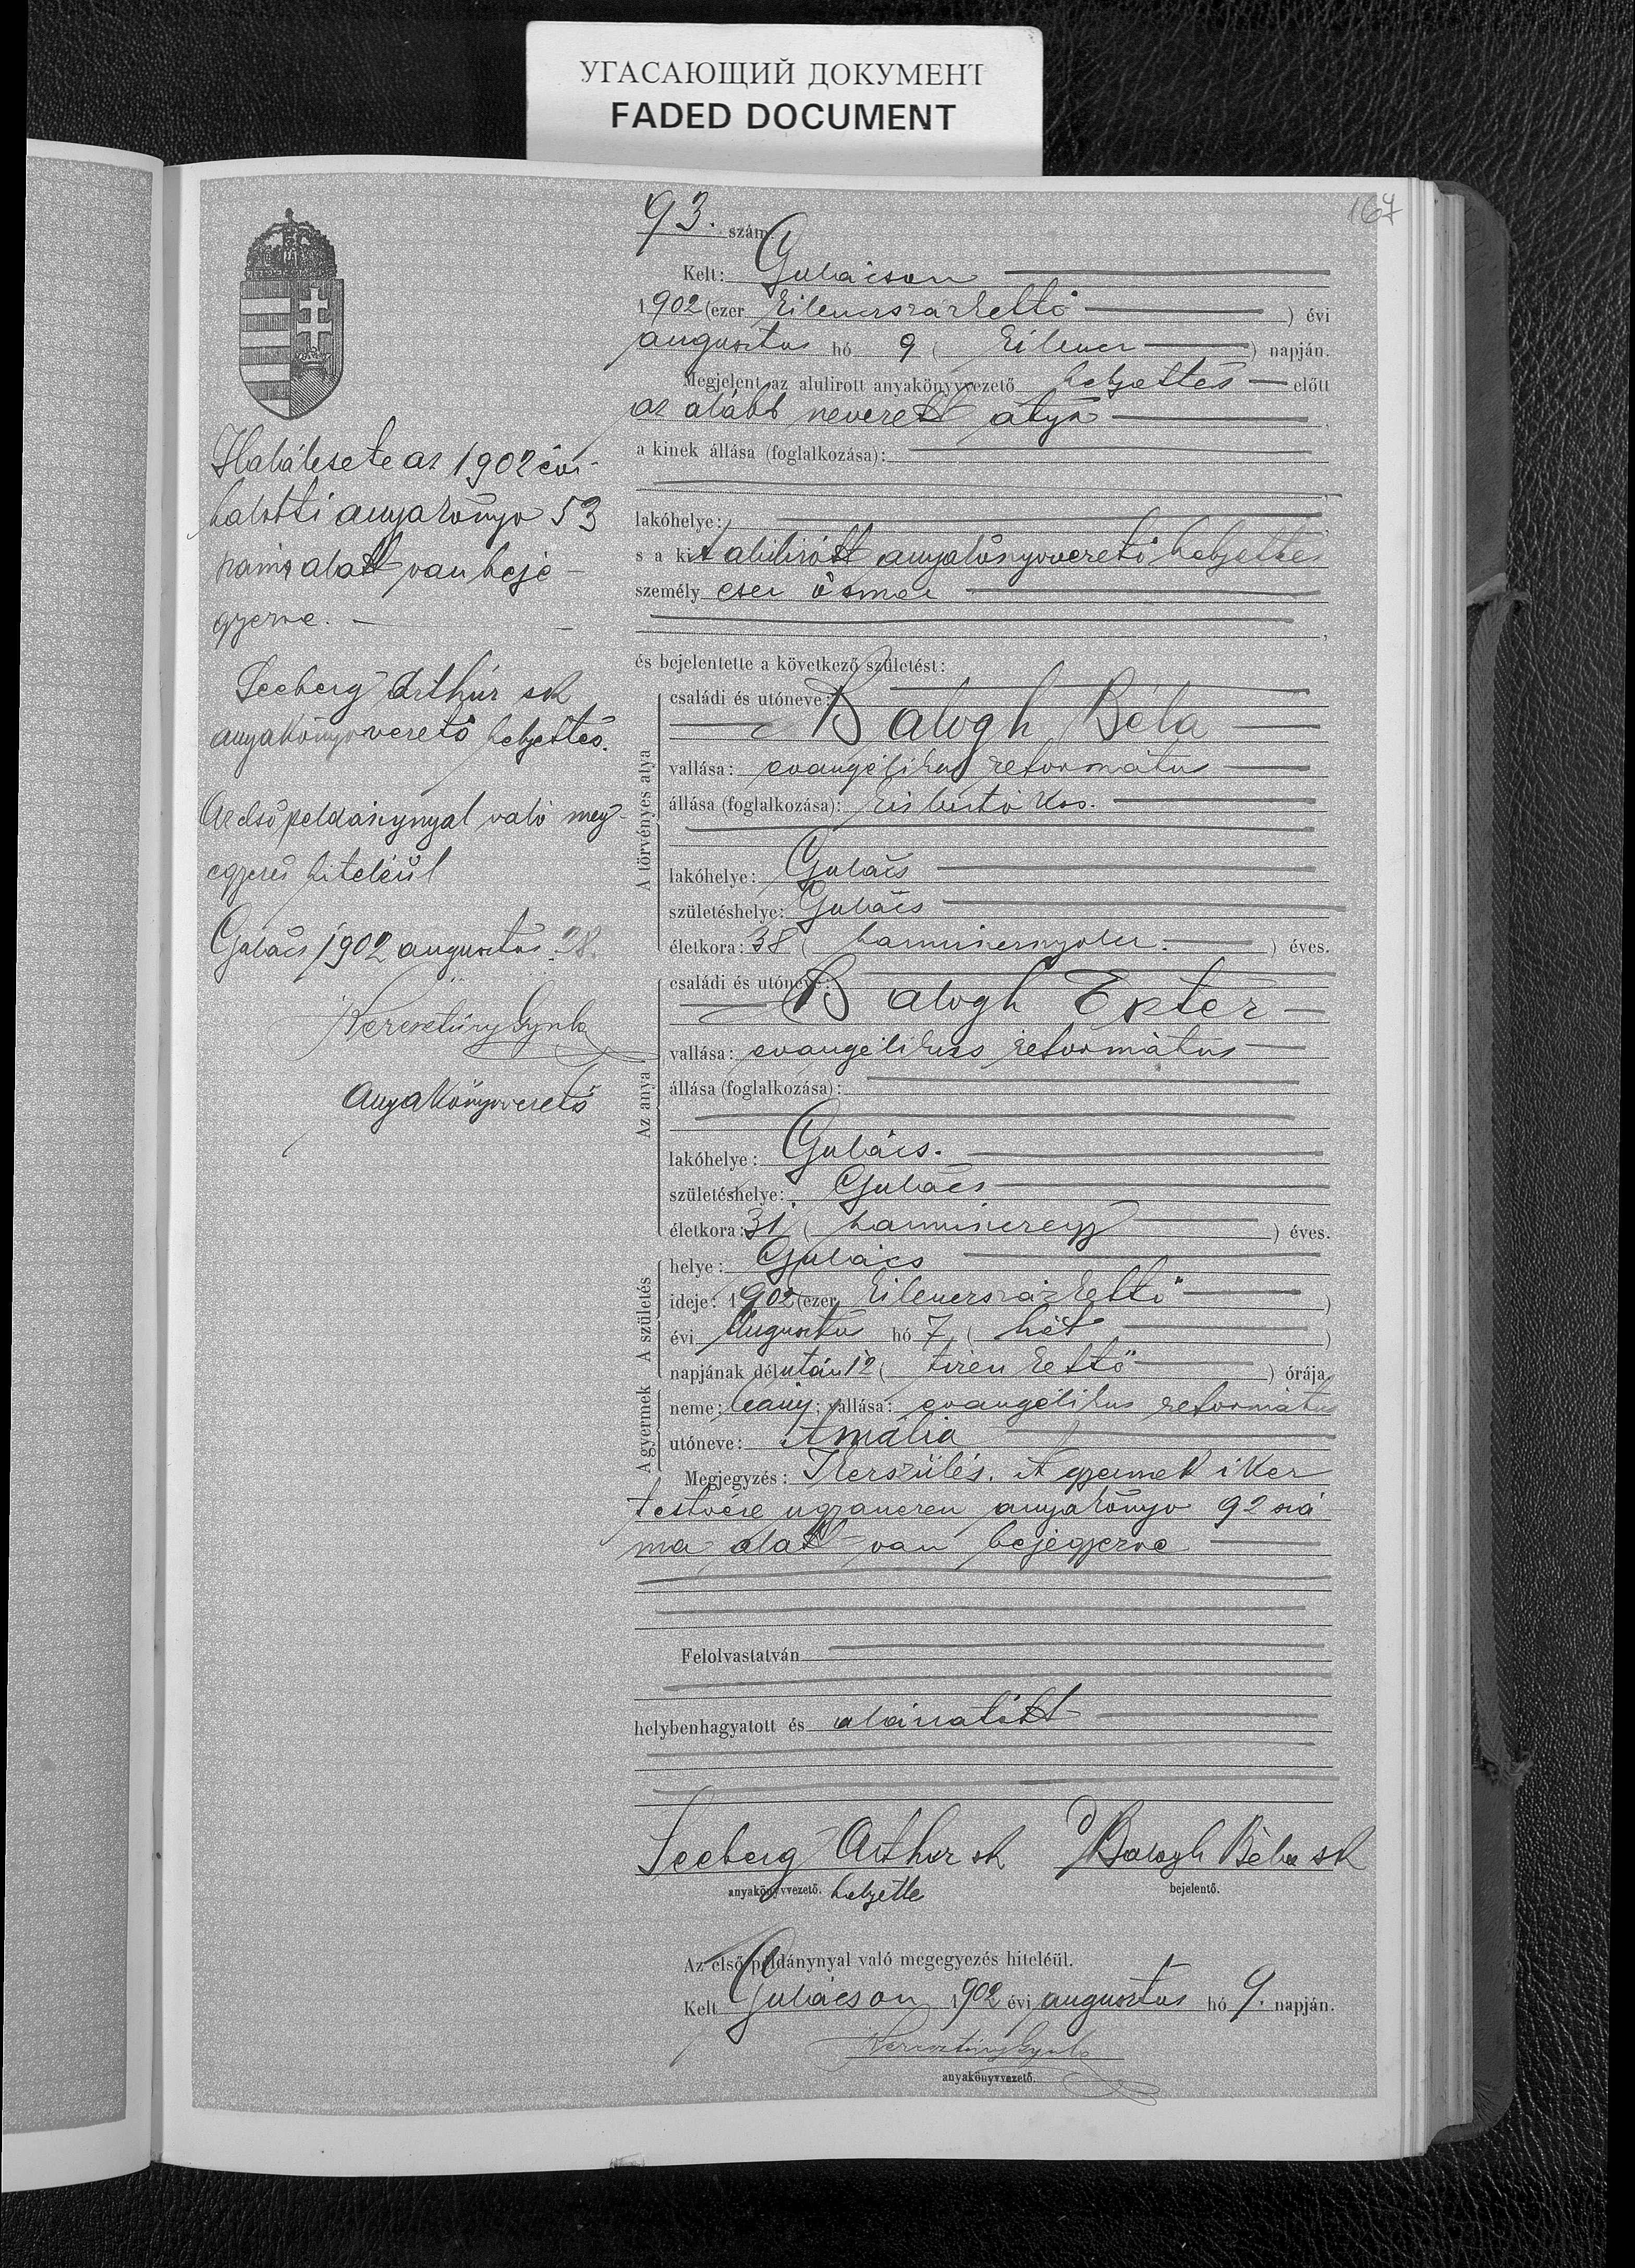 УГАСАЮЩИЙ ДОКУМЕНТ
FADED DOCUMENT
167
93. szám.
Kelt: Gulácson
1902 (ezer kilencszázkettő) évi
augusztus hó 9 (kilenc) napján.
Megjelent az alulirott anyakönyvvezető helyettes előtt
az alább nevezett atya
a kinek állása (foglalkozása):
lakóhelye:
s a kit alulirott anyakönyvvezető helyettes
személyesen ösmer
és bejelentette a következő születést:
A törvényes atya
családi és utóneve:
Balogh Béla
vallása: evangélikus református
állása (foglalkozása): kisbirtokos.
lakóhelye: Gulács
születéshelye: Gulács
életkora: 38 (harmincnyolc.) éves.
Az anya
családi és utóneve:
Balogh Eszter
vallása: evangélikus református
állása (foglalkozása):
lakóhelye: Gulács.
születéshelye: Gulács
életkora: 31 (harmincegy) éves.
A születés
helye: Gulács
ideje: 1902 (ezer kilencszázkettő)
évi Augusztus hó 7 (hét)
napjának délután 12 (tizenkettő) órája.
A gyermek
neme: leány; vallása: evangélikus református
utóneve: Amália
Megjegyzés: Ikerszülés. A gyermek iker
testvére ugyanezen anyakönyv 92 szá
ma alatt van bejegyezve
Felolvastatván
helybenhagyatott és aláiratott
Seeberg Arthur sk Balogh Béla sk
anyakönyvvezető. helyette bejelentő.
Az első példánynyal való megegyezés hiteléül.
Kelt Gulácson 1902 évi augusztus hó 9. napján.
Keresztúry Gyula
anyakönyvvezető.
Halálesete az 1902 évi
halotti anyakönyv 53
száma alatt van bejе-
gyezve.
Seeberg Arthúr sk
anyakönyvvezető helyettes.
Az első példánynyal való meg-
egyezés hiteléül
Gulács 1902 augusztus 28.
Keresztúry Gyula
Anyakönyvvezető